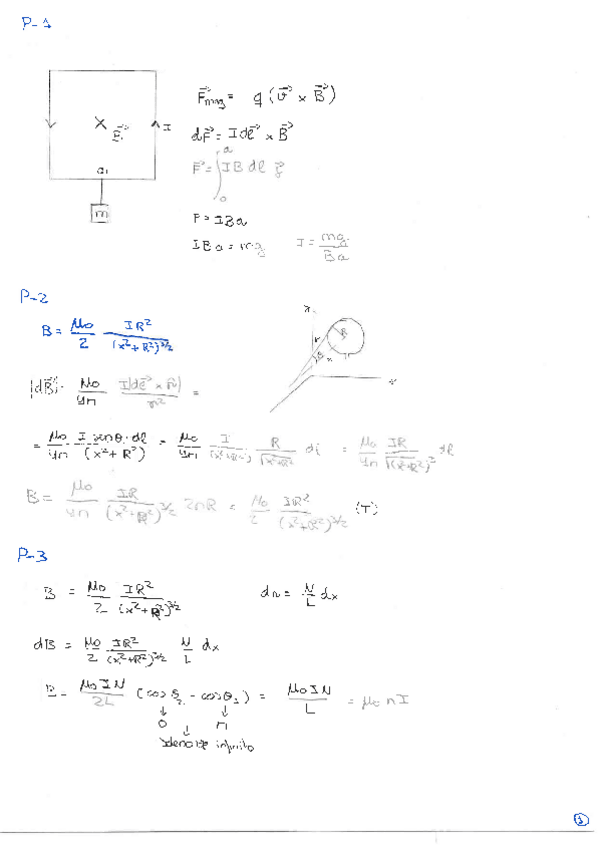 P-1
F⃗mag = q (v⃗ x B⃗)
I
dF⃗ = I dl⃗ x B⃗
a
F⃗ = ∫ IB dl
0
m
F = IBa
IBa = mg I = mg/Ba
P-2
B = μ₀/2 IR²/(x²+R²)^3/2
R
|dB⃗| = μ₀/4π I|dl⃗ x r̂|/r² =
= μ₀/4π I senθ · dl/(x² + R²) = μ₀/4π I/(x²+R²) R/√(x²+R²) dl = μ₀/4π IR/√(x²+R²)³ dl
B = μ₀/4π IR/(x²+R²)^3/2 2πR = μ₀/2 IR²/(x²+R²)^3/2 (T)
P-3
B = μ₀/2 IR²/(x²+R²)^3/2 dn = N/L dx
dB = μ₀/2 IR²/(x²+R²)^3/2 N/L dx
B = μ₀IN/2L (cosθ₂ - cosθ₁) = μ₀IN/L = μ₀nI
↓ ↓
0 π
↓
infinito
1